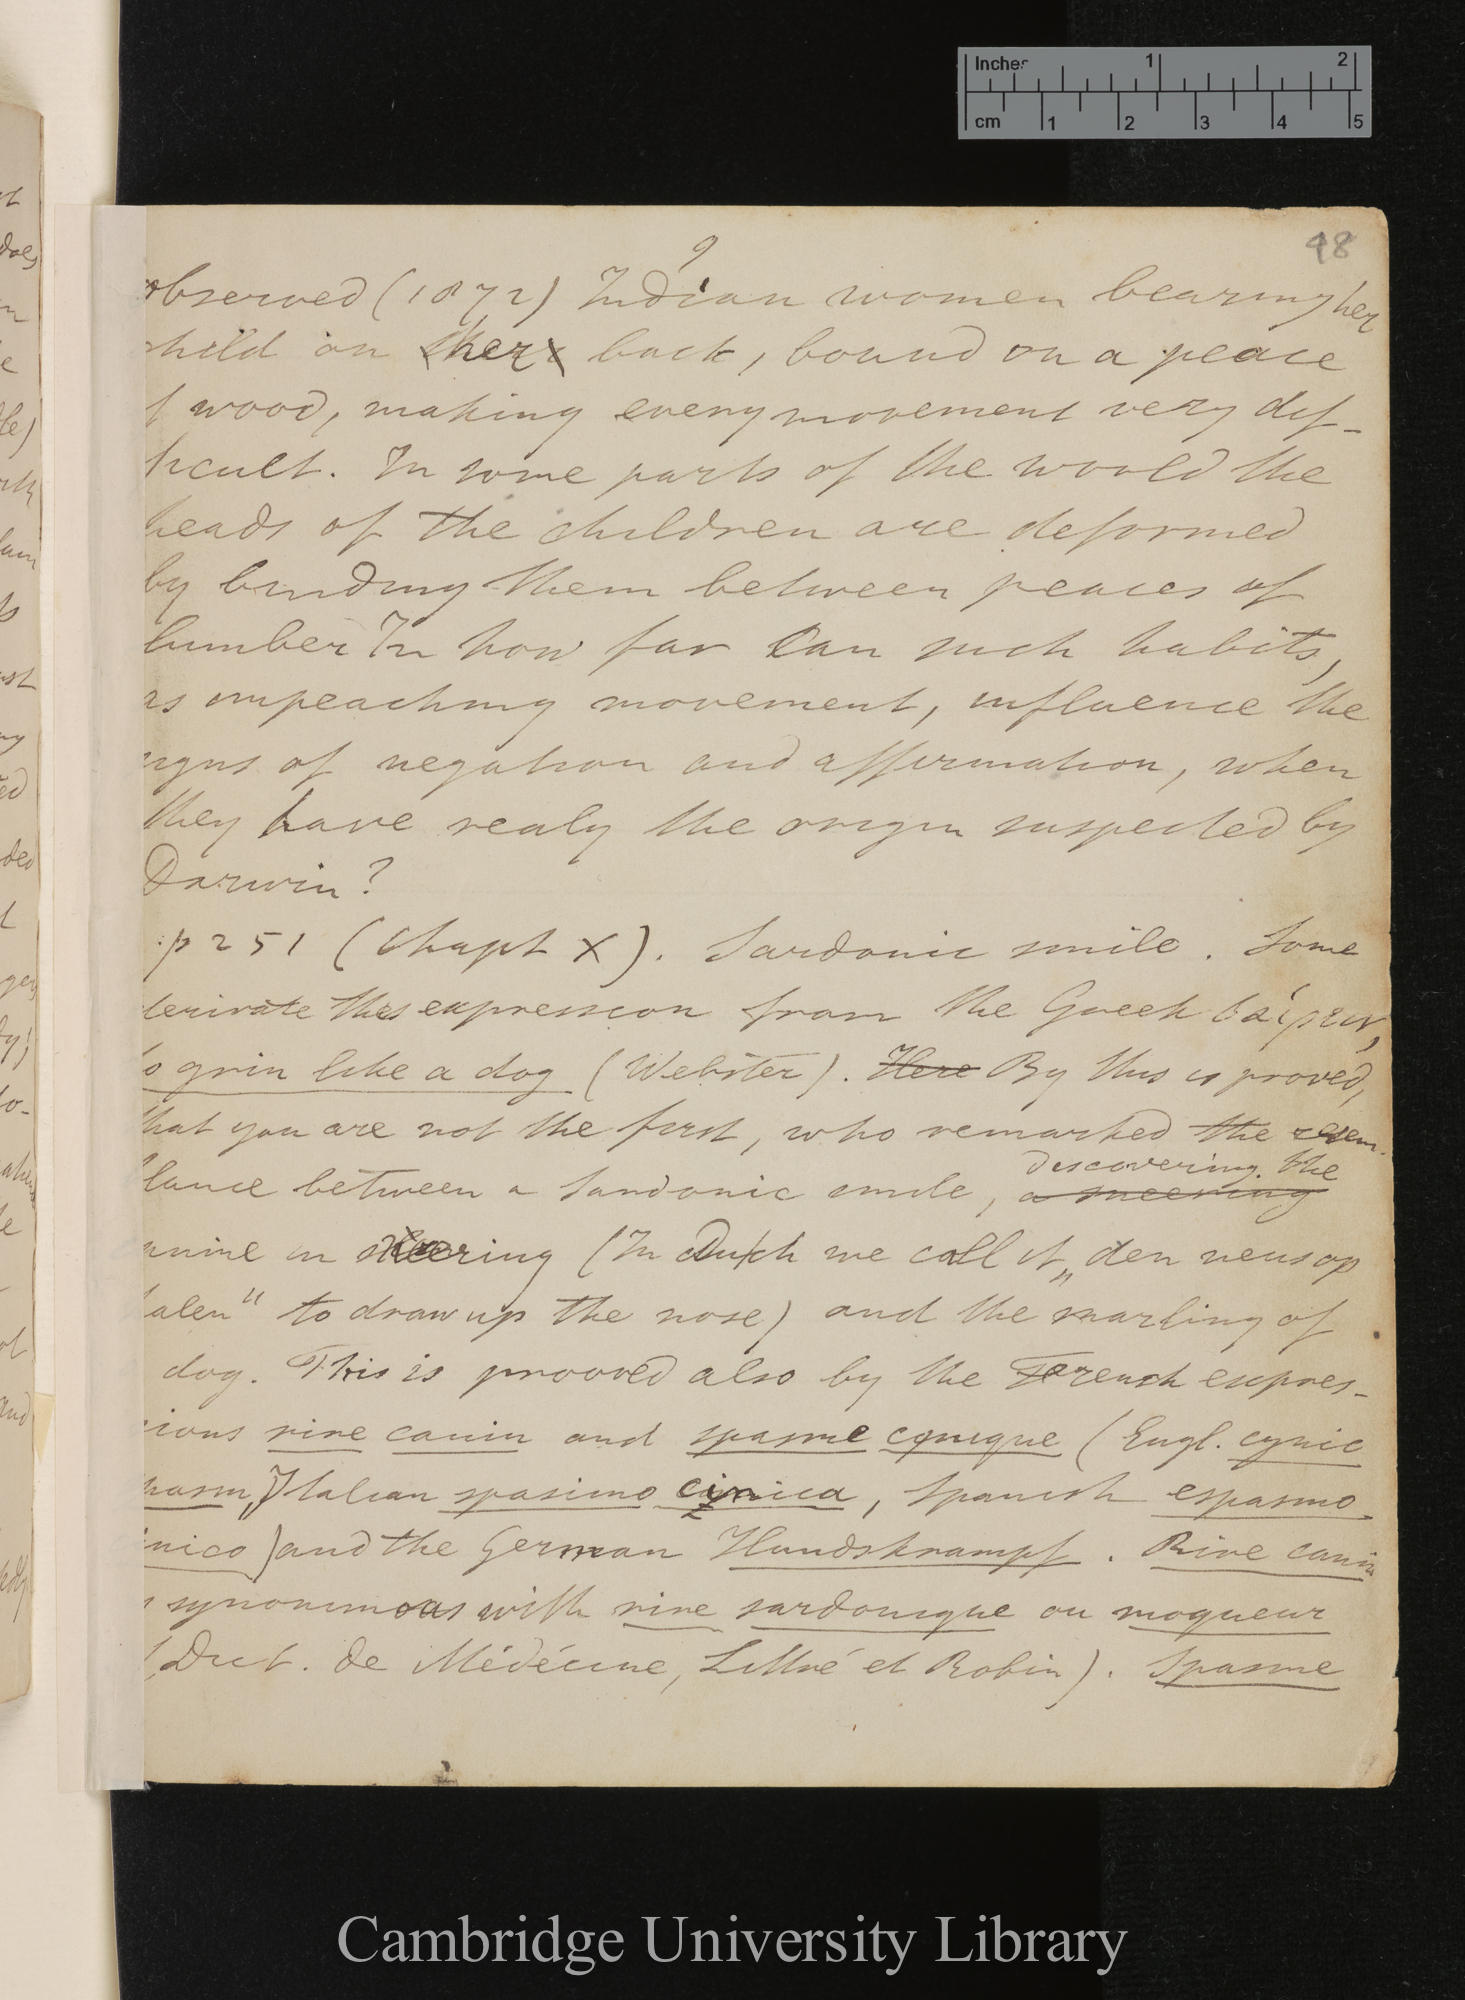 Inches 1 2
cm 1 2 3 4 5
48
9
observed (1872) Indian women bearing her
child on ther back, bound on a peace
f wood, making every movement very dif-
ficult. In some parts of the world the
heads of the children are deformed
by binding them between peaces of
lumber In how far can such habits,
as impeaching movement, influence the
signs of negation and affirmation, when
they have realy the origin suspected by
Darwin?
p 251 (Chapt X). Sardonic smile. Some
derivate this expression from the Greek
to grin like a dog (Webster). Here By this is proved,
that you are not the first, who remarked the resem-
blance between a Sardonic smile, a sneering
discovering the
canine in sneering (In Dutch we call it „den neus op
halen" to draw up the nose) and the snarling of
dog. This is prooved also by the French expres-
sions rire canin and spasme cynique (Engl. cynic
spasm, Italian spasimo cinica, Spanish espasmo
inico) and the German Hundskrampf. Rire canin
s synonimous with rire sardonique ou moqueur
(Dict. de Médécine, Littré et Robin). Spasme
Cambridge University Library